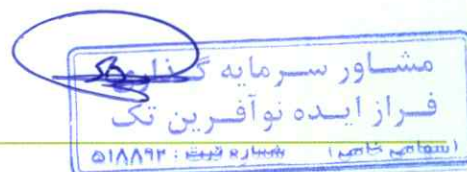 مشاور سرمایه گذاری
فراز ایده نوآفرین تک
(سهامی خاص) شماره ثبت : ۵۱۸۸۹۲